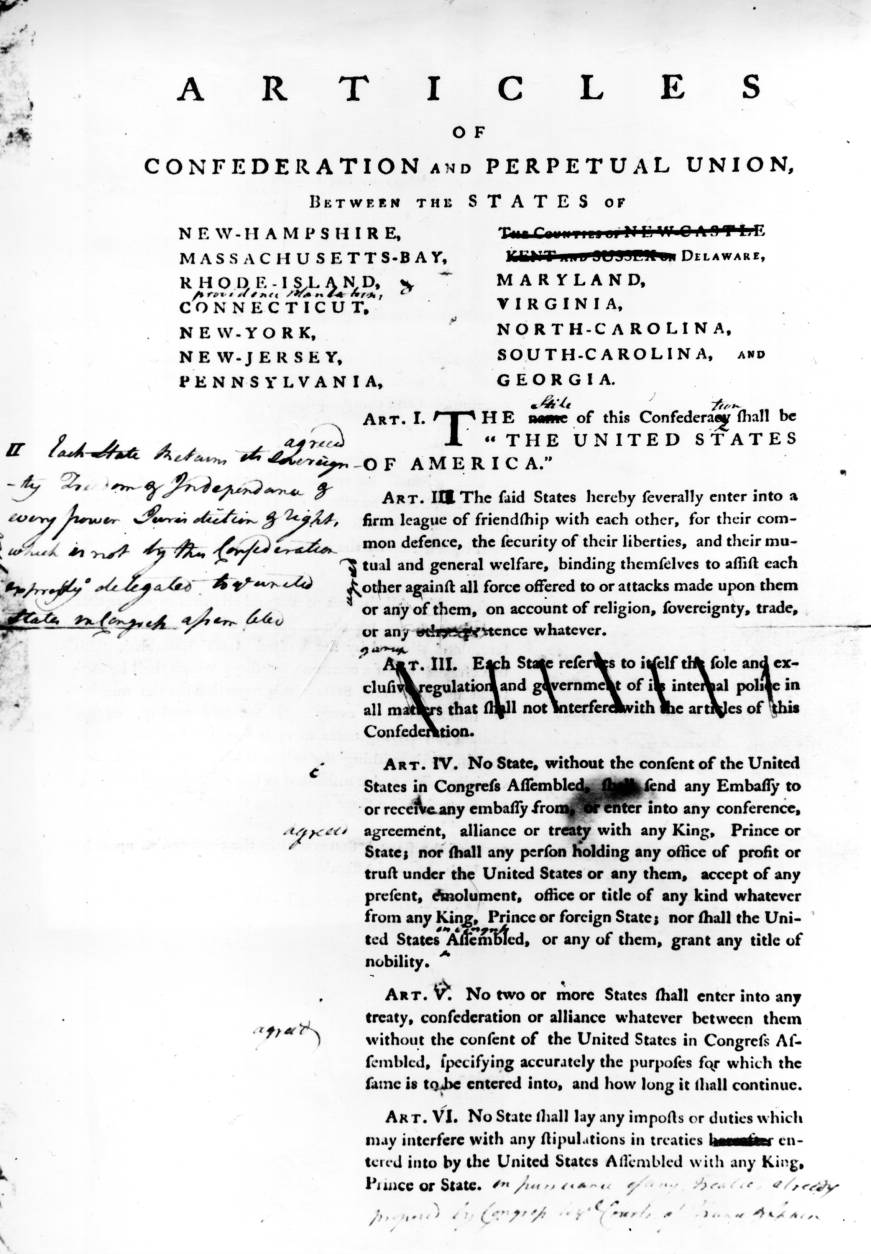 ARTICLES
OF
CONFEDERATION AND PERPETUAL UNION,
BETWEEN THE STATES OF
NEW-HAMPSHIRE,
MASSACHUSETTS-BAY,
RHODE-ISLAND, &
providence Plantations,
CONNECTICUT,
NEW-YORK,
NEW-JERSEY,
PENNSYLVANIA,
THE COUNTIES OF NEW-CASTLE
KENT AND SUSSEX ON DELAWARE,
MARYLAND,
VIRGINIA,
NORTH-CAROLINA,
SOUTH-CAROLINA, AND
GEORGIA.
agreed
II Each State Retains its Sovereign
-ty Freedom & Independance &
every power Jurisdiction & right,
which is not by this Confederation
expressly delegated to ye united
States in Congress assembled
Stile tion
ART. I. THE name of this Confederacy ſhall be
"THE UNITED STATES
OF AMERICA."
ART. III. The ſaid States hereby ſeverally enter into a
firm league of friendſhip with each other, for their com-
mon defence, the ſecurity of their liberties, and their mu-
tual and general welfare, binding themſelves to aſſiſt each
agreed
other againſt all force offered to or attacks made upon them
or any of them, on account of religion, ſovereignty, trade,
or any tence whatever.
ART. III. Each State reſerves to itſelf the ſole and ex-
cluſive regulation and government of its internal police in
all matters that ſhall not interfere with the articles of this
Confederation.
ART. IV. No State, without the conſent of the United
States in Congreſs Aſſembled, ſhall ſend any Embaſſy to
or receive any embaſſy from, or enter into any conference,
agreed
agreement, alliance or treaty with any King, Prince or
State; nor ſhall any perſon holding any office of profit or
truſt under the United States or any them, accept of any
preſent, emolument, office or title of any kind whatever
from any King, Prince or foreign State; nor ſhall the Uni-
in Congress
ted States Aſſembled, or any of them, grant any title of
nobility.
ART. V. No two or more States ſhall enter into any
treaty, confederation or alliance whatever between them
agreed
without the conſent of the United States in Congreſs Aſ-
ſembled, ſpecifying accurately the purpoſes for which the
ſame is to be entered into, and how long it ſhall continue.
ART. VI. No State ſhall lay any impoſts or duties which
may interfere with any ſtipulations in treaties hereafter en-
tered into by the United States Aſſembled with any King,
Prince or State. in pursuance of any treaties already
proposed by Congress to ye Courts of